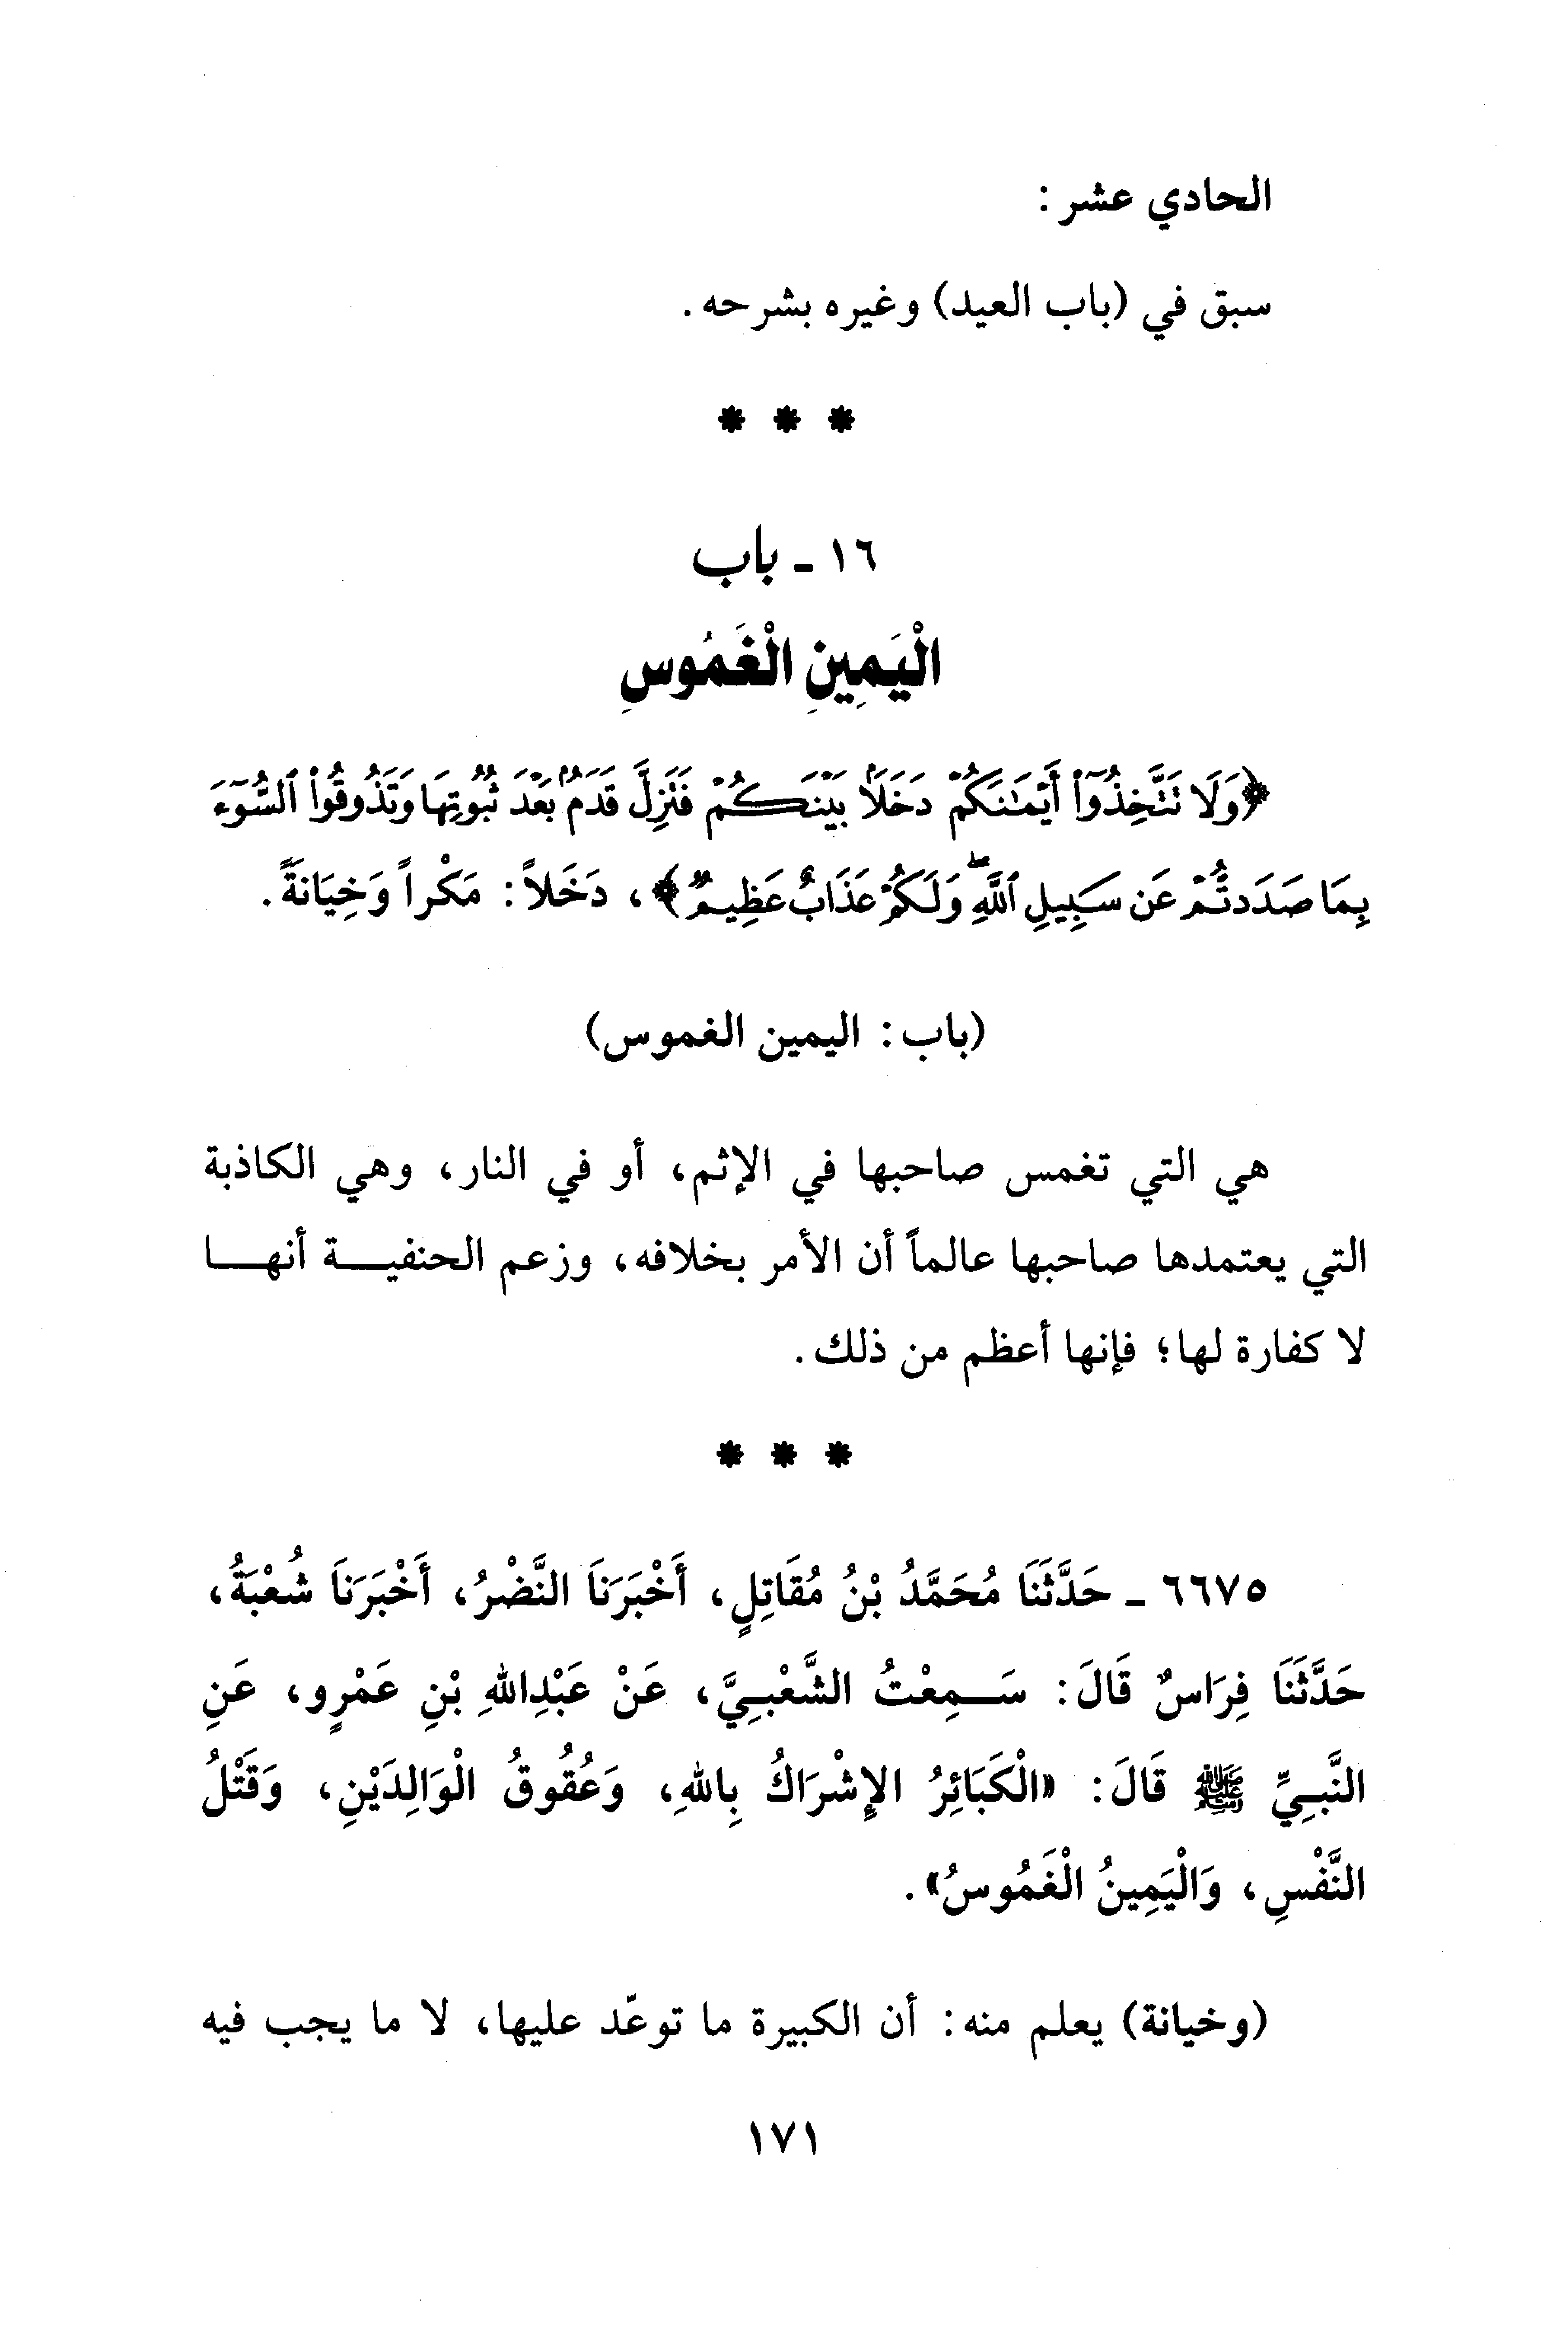 الحادي عشر :
سبق في (باب العيد) وغيره بشرحه .
* * *
١٦ - باب
الْيَمِينِ الْغَمُوسِ
﴿وَلَا نَتَّخِذُوٓا۟ أَيْمَـٰنَكُمْ دَخَلًۢا بَيْنَكُمْ فَتَزِلَّ قَدَمٌۢ بَعْدَ ثُبُوتِهَا وَتَذُوقُوا۟ ٱلسُّوٓءَ
بِمَا صَدَدتُّمْ عَن سَبِيلِ ٱللَّهِ ۖ وَلَكُمْ عَذَابٌ عَظِيمٌ﴾، دَخَلاً: مَكْراً وَخِيَانَةً .
(باب: اليمين الغموس)
هي التي تغمس صاحبها في الإثم، أو في النار، وهي الكاذبة
التي يعتمدها صاحبها عالماً أن الأمر بخلافه، وزعم الحنفيـة أنهـا
لا كفارة لها؛ فإنها أعظم من ذلك .
* * *
٦٦٧٥ - حَدَّثَنَا مُحَمَّدُ بْنُ مُقَاتِلٍ، أَخْبَرَنَا النَّضْرُ، أَخْبَرَنَا شُعْبَةُ،
حَدَّثَنَا فِرَاسٌ قَالَ: سَـمِعْتُ الشَّعْبِيَّ، عَنْ عَبْدِاللهِ بْنِ عَمْرٍو، عَنِ
النَّبِيِّ ﷺ قَالَ: «الْكَبَائِرُ الإِشْرَاكُ بِاللهِ، وَعُقُوقُ الْوَالِدَيْنِ، وَقَتْلُ
النَّفْسِ، وَالْيَمِينُ الْغَمُوسُ» .
(وخيانة) يعلم منه: أن الكبيرة ما توعّد عليها، لا ما يجب فيه
١٧١